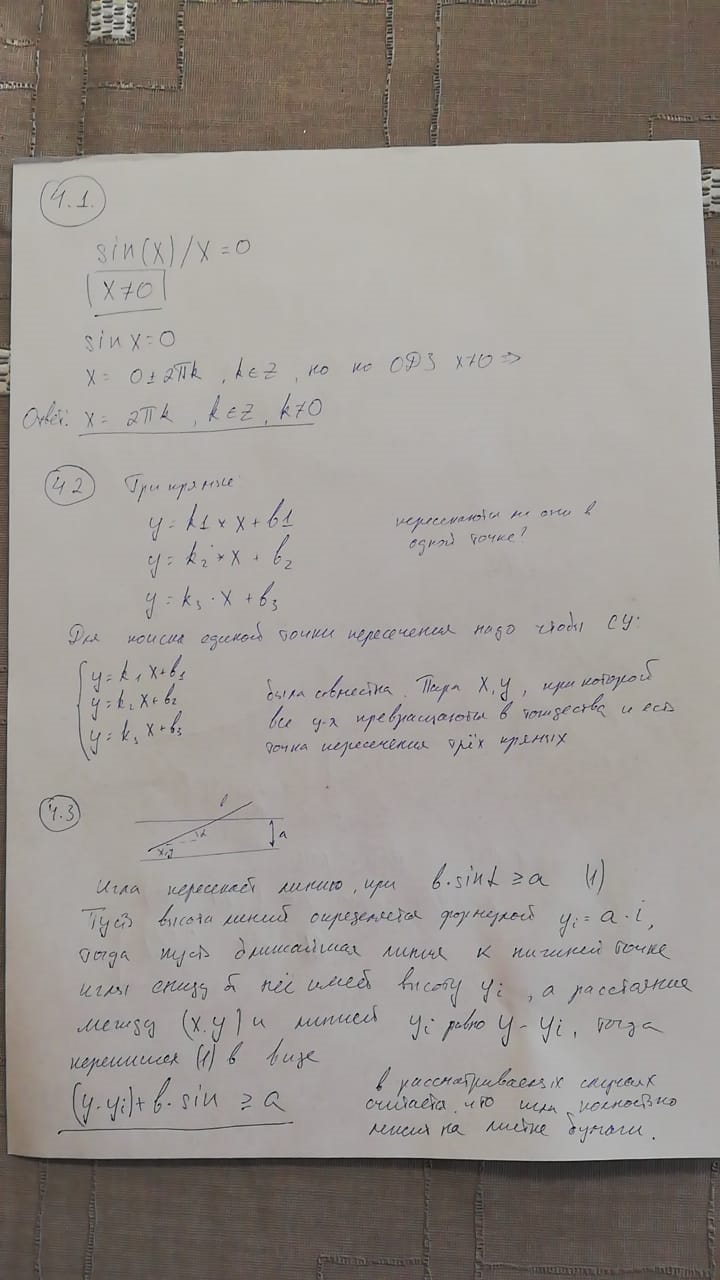 4.1.
sin(x)/x = 0
x≠0
sin x = 0
x = 0 ± 2πk, k∈Z, но по ОДЗ x≠0 ⇒
Ответ: x = 2πk, k∈Z, k≠0
4.2 Три прямые:
y = k1 * x + b1
пересекаются ли они в
y = k2 * x + b2
одной точке?
y = k3 · x + b3
Для поиска единой точки пересечения надо чтобы СУ:
y = k1 x + b1
y = k2 x + b2
y = k3 x + b3
была совместна. Пара x, y, при которой
все ур-я превращаются в тождества и есть
точка пересечения трёх прямых
4.3
a
x,y
Игла пересекает линию, при b·sinα ≥ a (1)
Пусть высота линий определяется формулой yi = a·i,
тогда пусть ближайшая линия к нижней точке
иглы снизу от неё имеет высоту yi, а расстояние
между (x.y) и линией yi равно y - yi, тогда
перепишем (1) в виде
(y-yi) + b·sin ≥ a
в рассматриваемых случаях
считается, что игла полностью
лежит на листке бумаги.